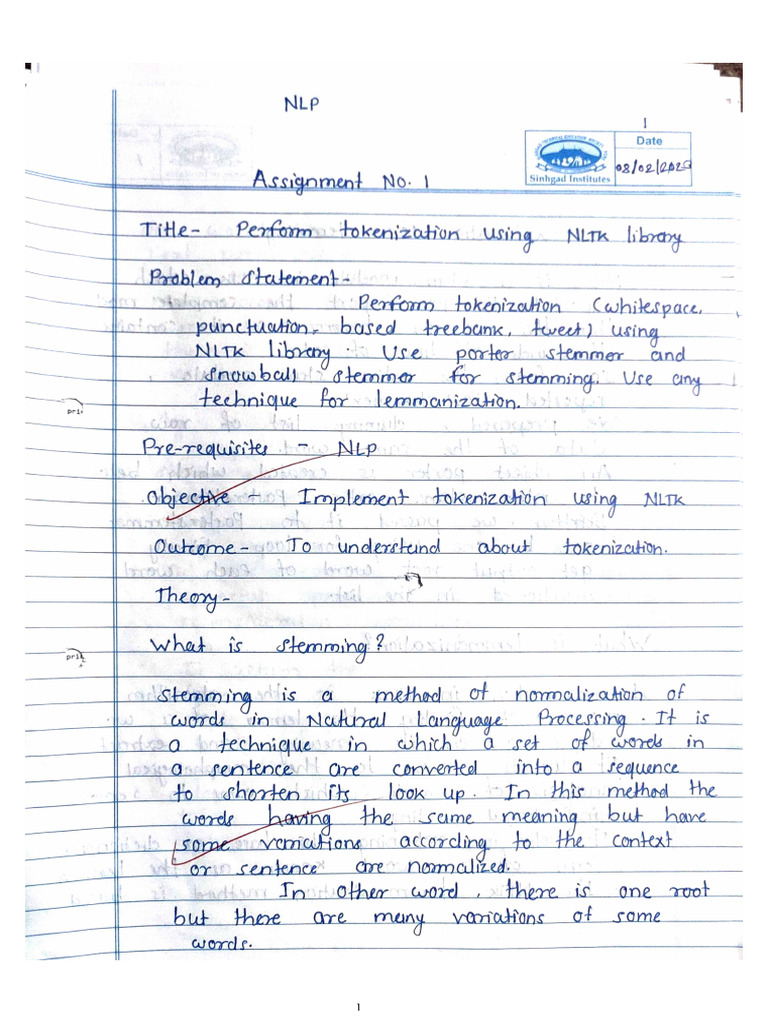 NLP
1
Date
Sinhgad Institutes
08/02/202
Assignment No. 1
Title- Perform tokenization using NLTK library
Problem statement-
Perform tokenization (whitespace,
punctuation, based treebank, tweet) using
NLTK library. Use porter stemmer and
snowball stemmer for stemming. Use any
technique for lemmanization.
Pre-requisites - NLP
Objective - Implement tokenization using NLTK
Outcome- To understand about tokenization.
Theory-
What is stemming?
Stemming is a method of normalization of
words in Natural Language Processing. It is
a technique in which a set of words in
a sentence are converted into a sequence
to shorten its look up. In this method the
words having the same meaning but have
some variations according to the context
or sentence are normalized.
In other word, there is one root
but there are many variations of some
words.
1